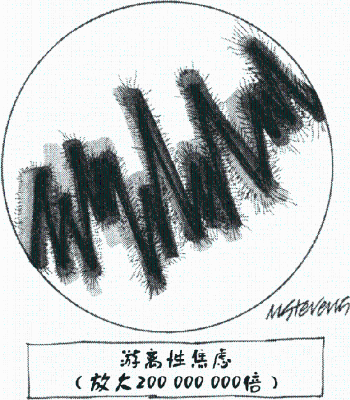 MStevens
游离性焦虑
（放大200 000 000倍）